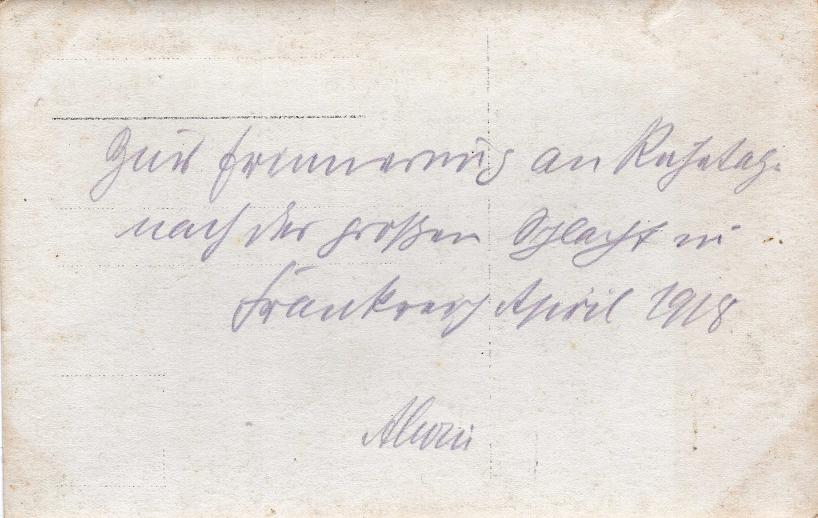 Zur Erinnerung an Ruhetag.
nach der großen Schlacht in
Frankreich April 1918.
Alwin